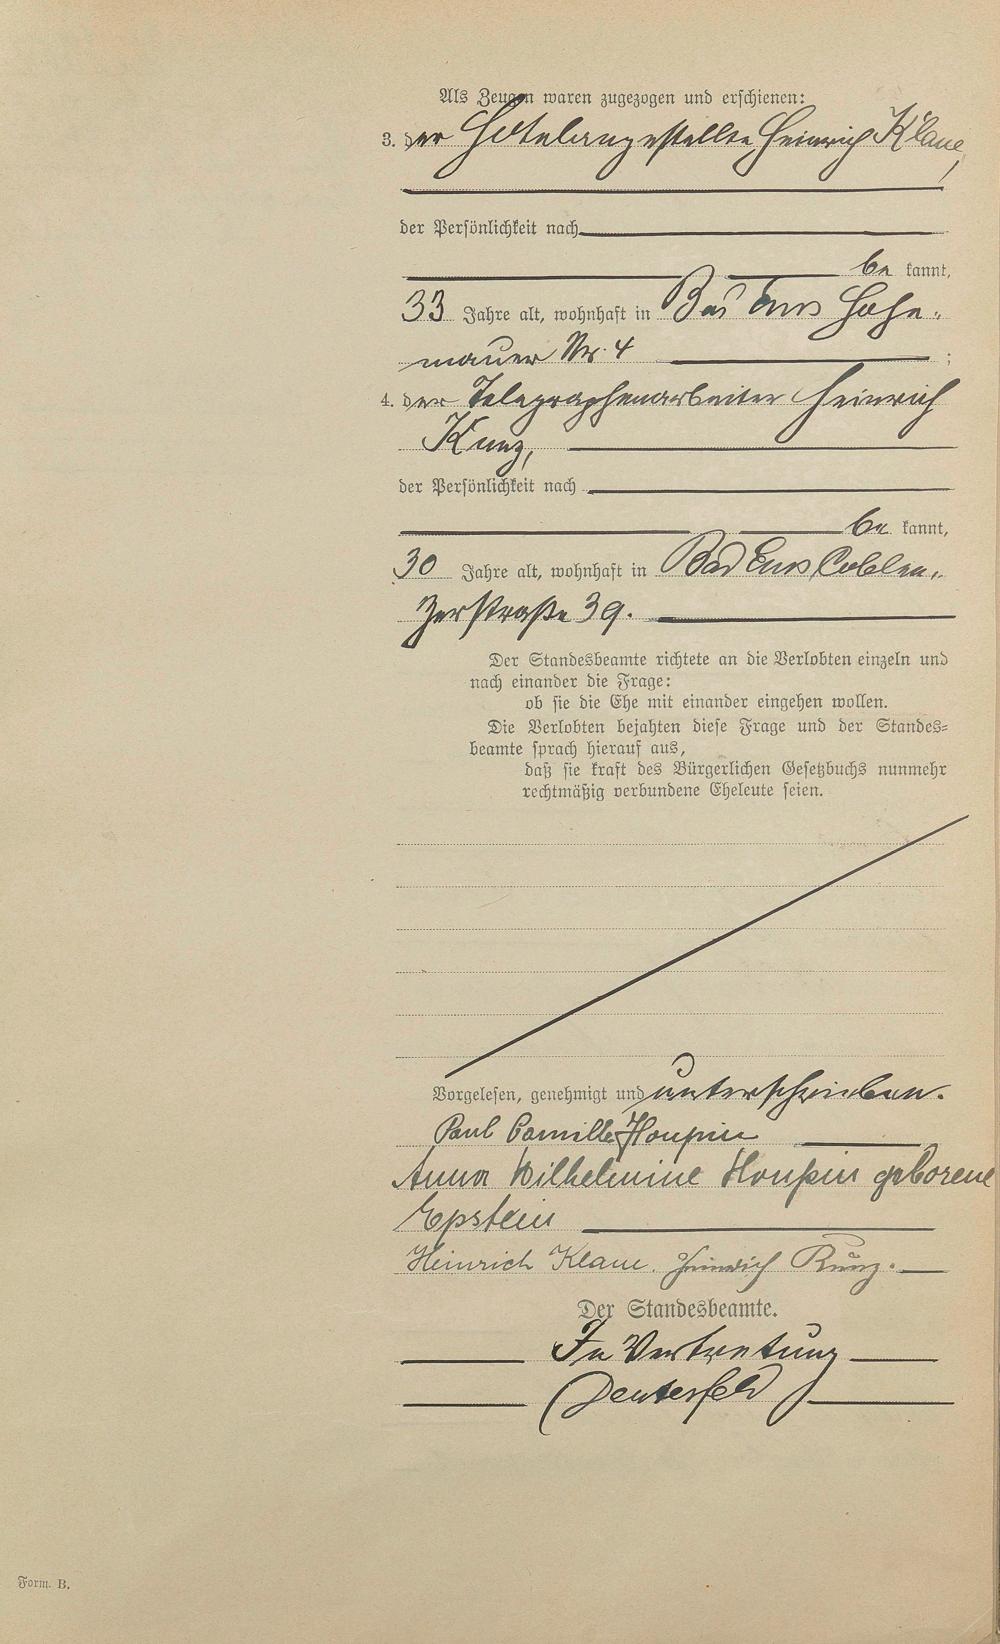 Als Zeugen waren zugezogen und erschienen:
3. der Hotelangestellte Heinrich Klaue,
der Persönlichkeit nach
be kannt,
33 Jahre alt, wohnhaft in Bad Ems Hohe-
mauer Nr. 4 ;
4. der Telegraphenarbeiter Heinrich
Kunz,
der Persönlichkeit nach
be kannt,
30 Jahre alt, wohnhaft in Bad Ems Coblen-
zerstraße 39.
Der Standesbeamte richtete an die Verlobten einzeln und
nach einander die Frage:
ob sie die Ehe mit einander eingehen wollen.
Die Verlobten bejahten diese Frage und der Standes-
beamte sprach hierauf aus,
daß sie kraft des Bürgerlichen Gesetzbuchs nunmehr
rechtmäßig verbundene Eheleute seien.
Vorgelesen, genehmigt und unterschrieben.
Paul Camille Houpin
Anna Wilhelmine Houpin geborene
Epstein
Heinrich Klaue. Heinrich Kunz.
Der Standesbeamte.
In Vertretung
Deuterfeld
Form. B.